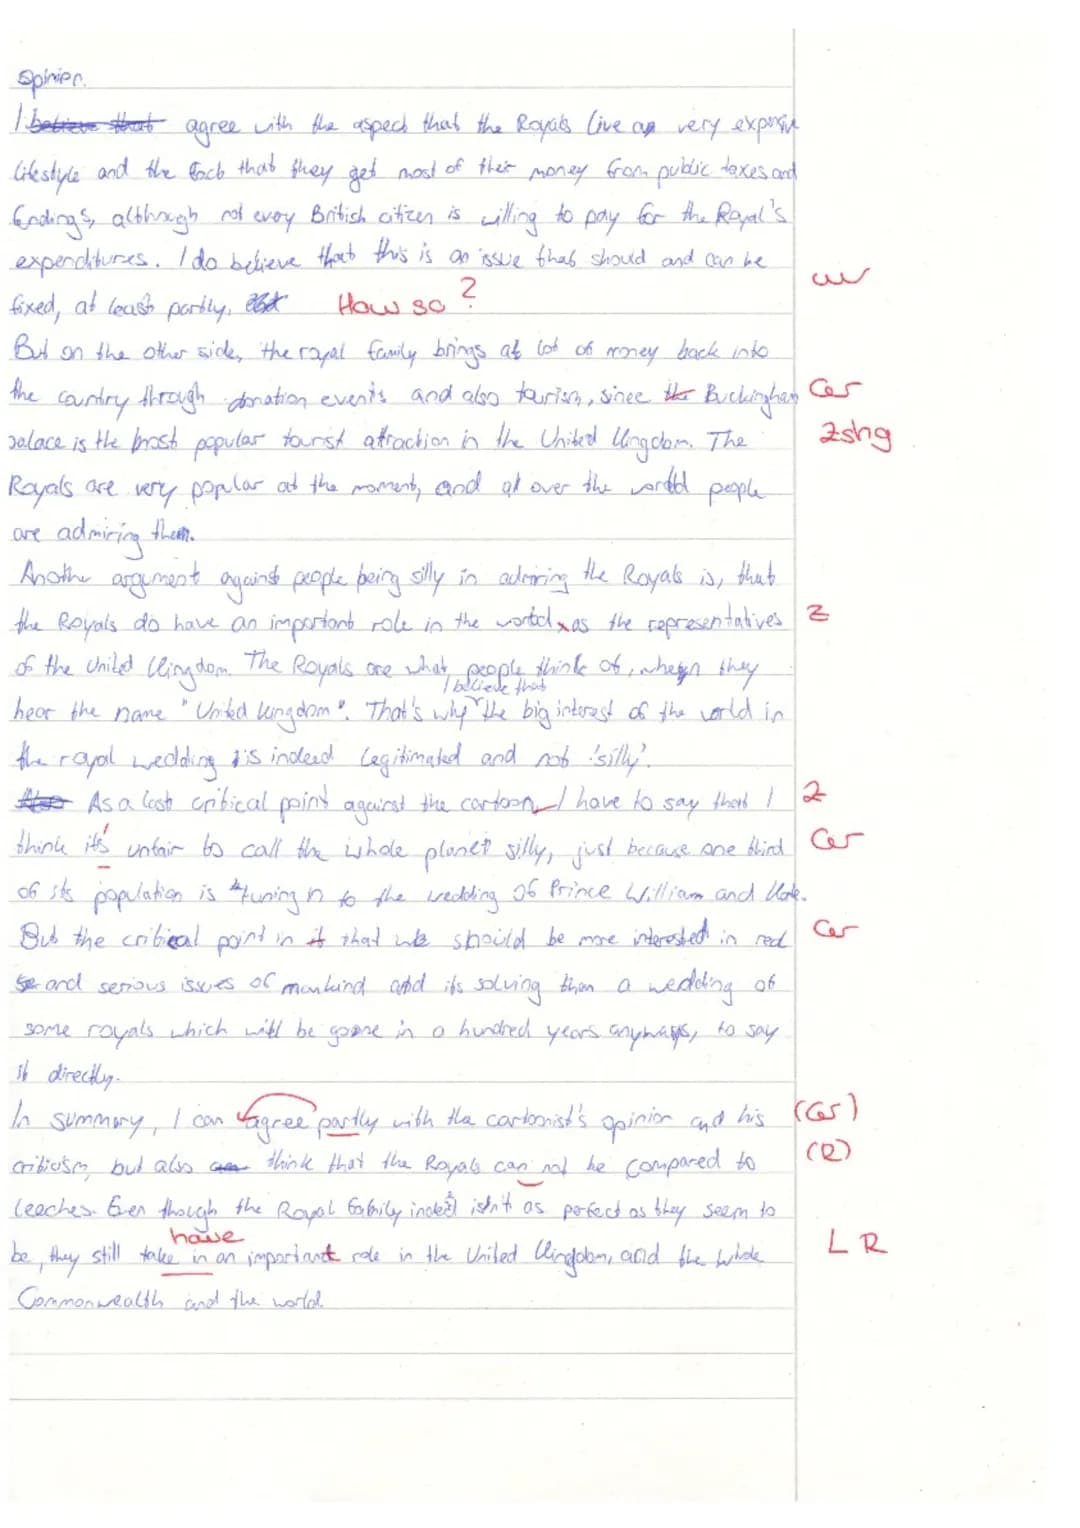 Opinion.
I believe that agree with the aspect that the Royals live an very expensive
lifestyle and the fact that they get most of their money from public taxes and
fundings, although not every British citizen is willing to pay for the Royal's
expenditures. I do believe that this is an issue that should and can be
fixed, at least partly. How so?
But on the other side, the royal family brings a lot of money back into
the country through donation events and also tourism, since the Buckingham
palace is the most popular tourist attraction in the United Kingdom. The
Royals are very popular at the moment, and all over the world people
are admiring them.
Another argument against people being silly in admiring the Royals is, that
the Royals do have an important role in the world, as the representatives
of the United Kingdom. The Royals are what people think of, when they
I believe that
hear the name "United Kingdom". That's why the big interest of the world in
the royal wedding is indeed legitimated and not 'silly'.
Also As a last critical point against the cartoon, I have to say that I
think it's unfair to call the whole planet silly, just because one third
of its population is tuning in to the wedding of Prince William and Kate.
But the critical point in it that we should be more interested in real
and serious issues of mankind and its solving than a wedding of
some royals which will be gone in a hundred years anyways, to say
it directly.
In summary, I can agree partly with the cartoonist's opinion and his
criticism, but also think that the Royals can not be compared to
leeches. Even though the Royal Family indeed isn't as perfect as they seem to
have
be, they still take in an important role in the United Kingdom, and the whole
Commonwealth and the world.
Gr
Zshg
Z
Z
Gr
Gr
(Gr)
(R)
L R